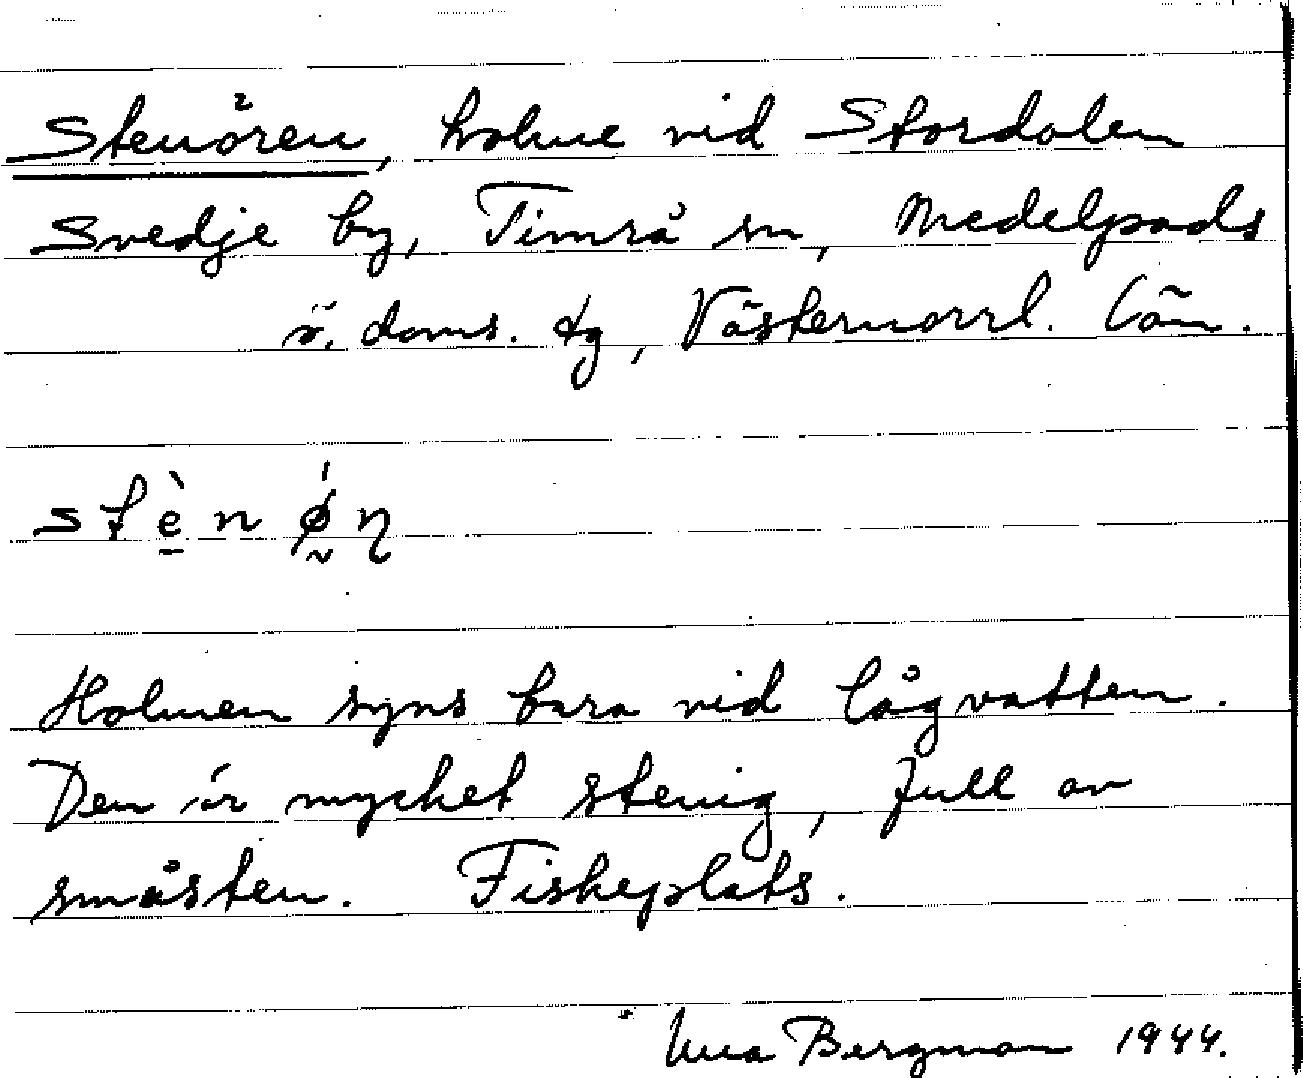 Stenören, holme vid Stordalen
Svedje by, Timrå sn, Medelpads
ö. doms. tg, Västernorrl. län.
stèn ǿn
Holmen syns bara vid lågvatten.
Den är mycket stenig, full av
småsten. Fiskeplats.
Bergman 1944.